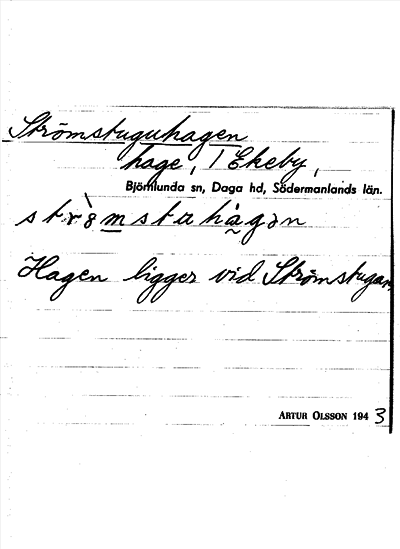 Strömstuguhagen
hage, / Ekeby,
Björnlunda sn, Daga hd, Södermanlands län.
Hagen ligger vid Strömstugan
ARTUR OLSSON 1943